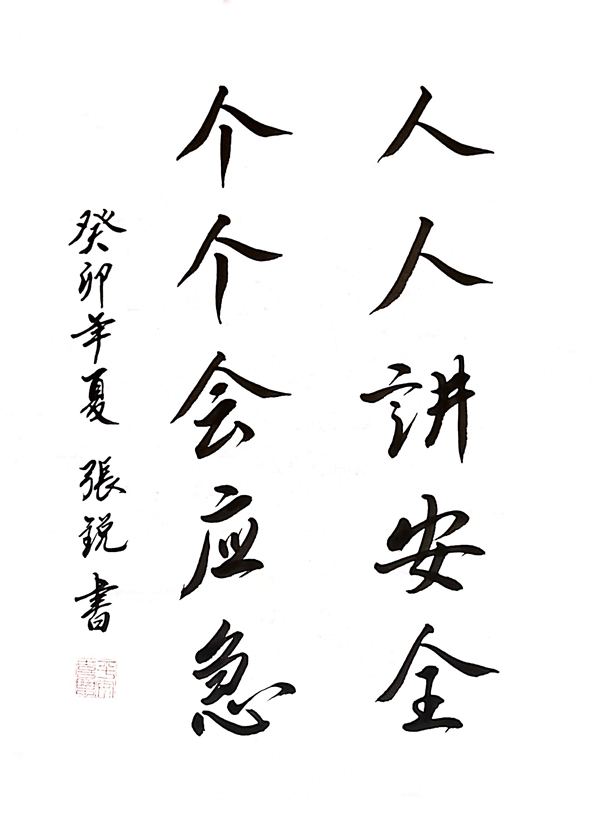 人人讲安全
个个会应急
癸卯年夏 張銳書